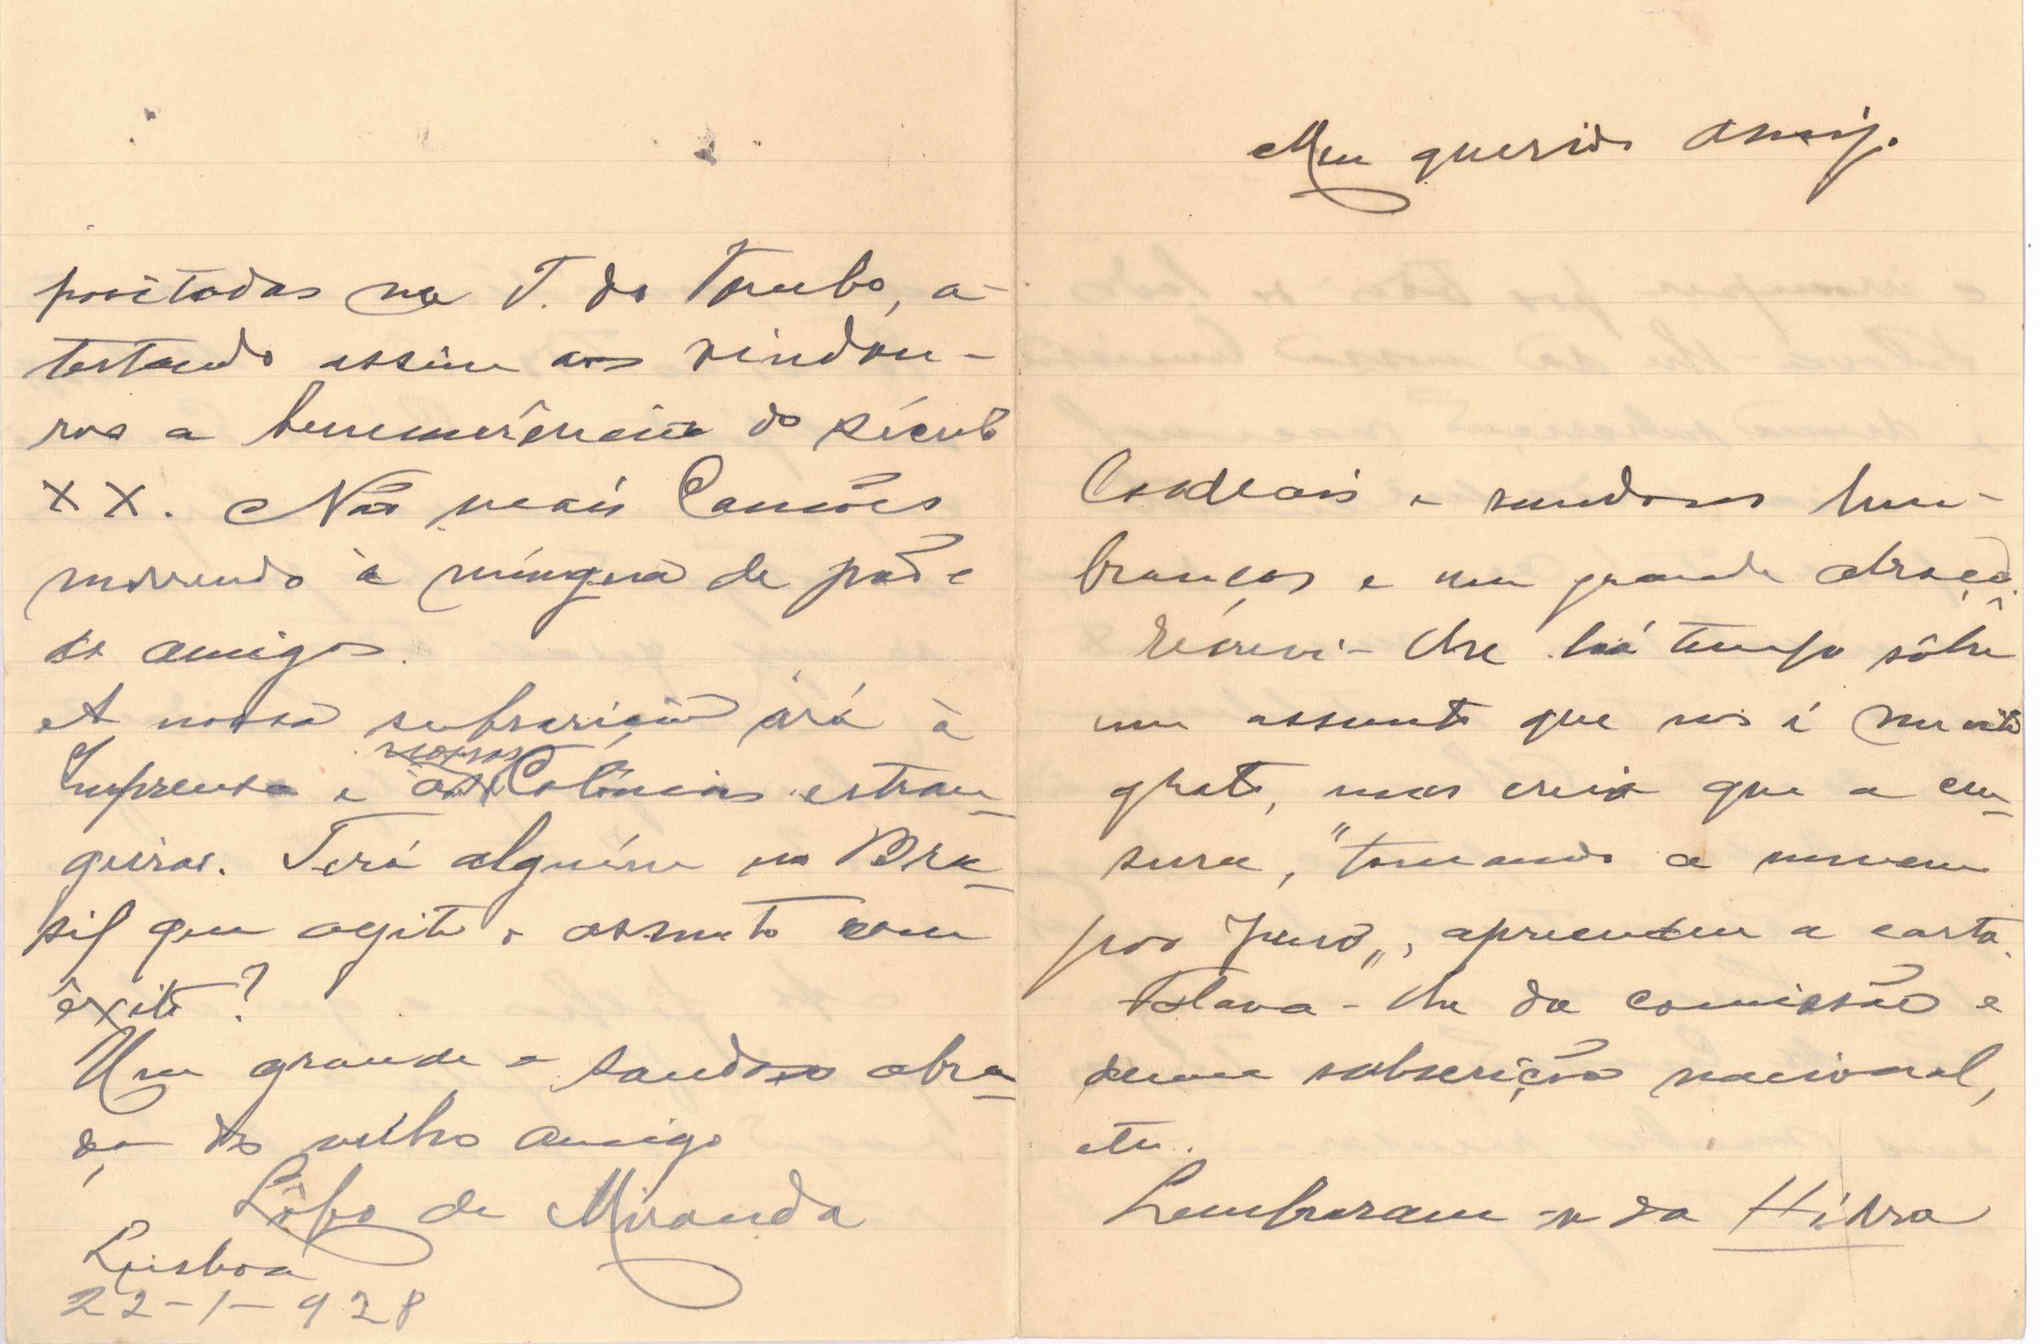 Meu querido Amigo.
Cordeais e saudosas lem-
branças e um grande abraço.
Escrevi-lhe há tempo sôbre
um assunto que nos é muito
grato, mas creio que a cen-
sura, "tomando a nuvem
por Juno", apreendeu a carta.
Falava-lhe da comissão e
duma subscrição nacional,
etc.
Lembraram-se da Hidra
positadas na T. do Tombo, a-
testando assim aos vindou-
ros a benemerência do século
XX. Não mais Camões
morrendo à míngua de pão e
de amigos.
A nossa subscrição irá à
Imprensa e às nossas Colónias estran-
geiras. Terá alguém no Bra-
sil que agite o assunto com
êxito?
Um grande e saudoso abra-
ço do velho amigo
Lôbo de Miranda
Lisboa
22-1-928